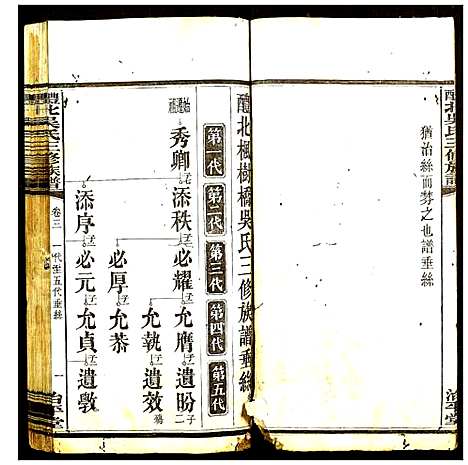 醴北吳氏三修族譜
猶治絲而棼之也譜垂絲
治平堂
醴北楓樹橋吳氏三修族譜垂絲
第一代
第二代
第三代
第四代
第五代
秀卿 添秩 必耀 允膺 遺盼
允執 遺效
必厚 允恭
添序 必元 允貞 遺斆
醴北吳氏三修族譜
卷三
一代至五代垂絲
一
治平堂